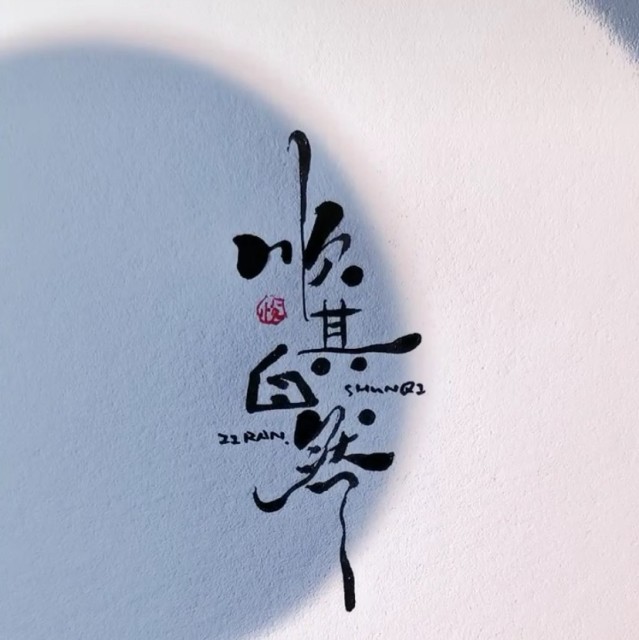 顺其自然
SHUNQI
ZIRAN.